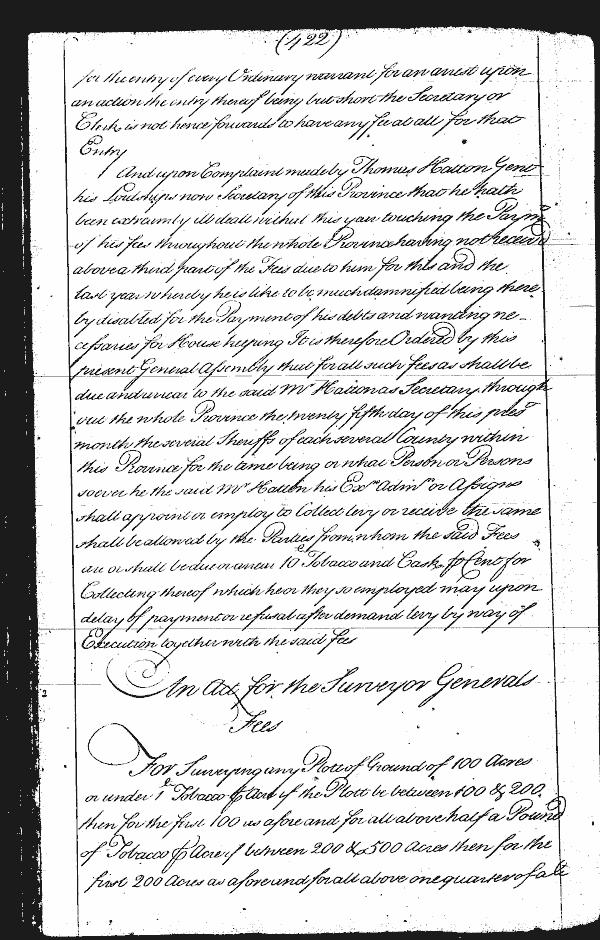 (422)
for the entry of every Ordinary warrant for an arrest upon
an action the entry thereof being but short the Secretary or
Clerk is not hence forwards to have any fee at all for that
Entry
And upon Complaint made by Thomas Hatton Gent
his Lordships now Secretary of this Province that he hath
been extreamly ill dealt with all this year touching the Paymt
of his fees throughout the whole Province having not received
above a third part of the Fees due to him for this and the
last year whereby he is like to be much damnified being there
by disabled for the Payment of his debts and wanting ne-
cessaries for House keeping It is therefore Ordered by this
present General Assembly that for all such fees as shall be
due and unear to the said Mr Hatton as Secretary through
out the whole Province the twenty fifth day of this prest
month the several Sheriffs of each several County within
this Province for the time being or what Person or Persons
soever he the said Mr Hatton his Exrs Admrs or Assigns
shall appoint or employ to Collect levy or receive the same
shall be allowed by the Parties from whom the said Fees
are or shall be due or unear 10 Tobacco and Cask p Cent for
Collecting thereof which he or they so employed may upon
delay of payment or refusal after demand levy by way of
Execution together with the said fees
An Act for the Surveyor Generals
Fees
For Surveying any Plott of Ground of 100 Acres
or under 1 Tobacco p Acre if the Plott be between 100 & 200
then for the first 100 as afore and for all above half a Pound
of Tobacco p Acre if between 200 & 500 Acres then for the
first 200 Acres as afore and for all above one quarter of a lb